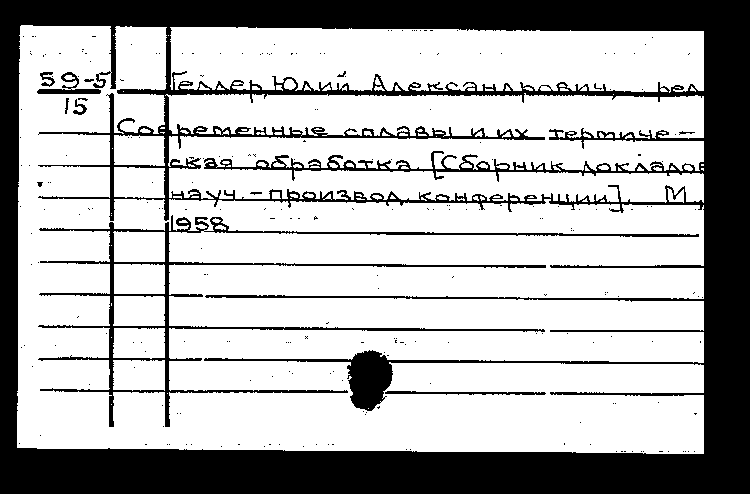 59-5 Геллер, Юлий Александрович, ред
15
Современные сплавы и их термиче-
ская обработка. [Сборник докладов
науч.-производ. конференции]. М.,
1958